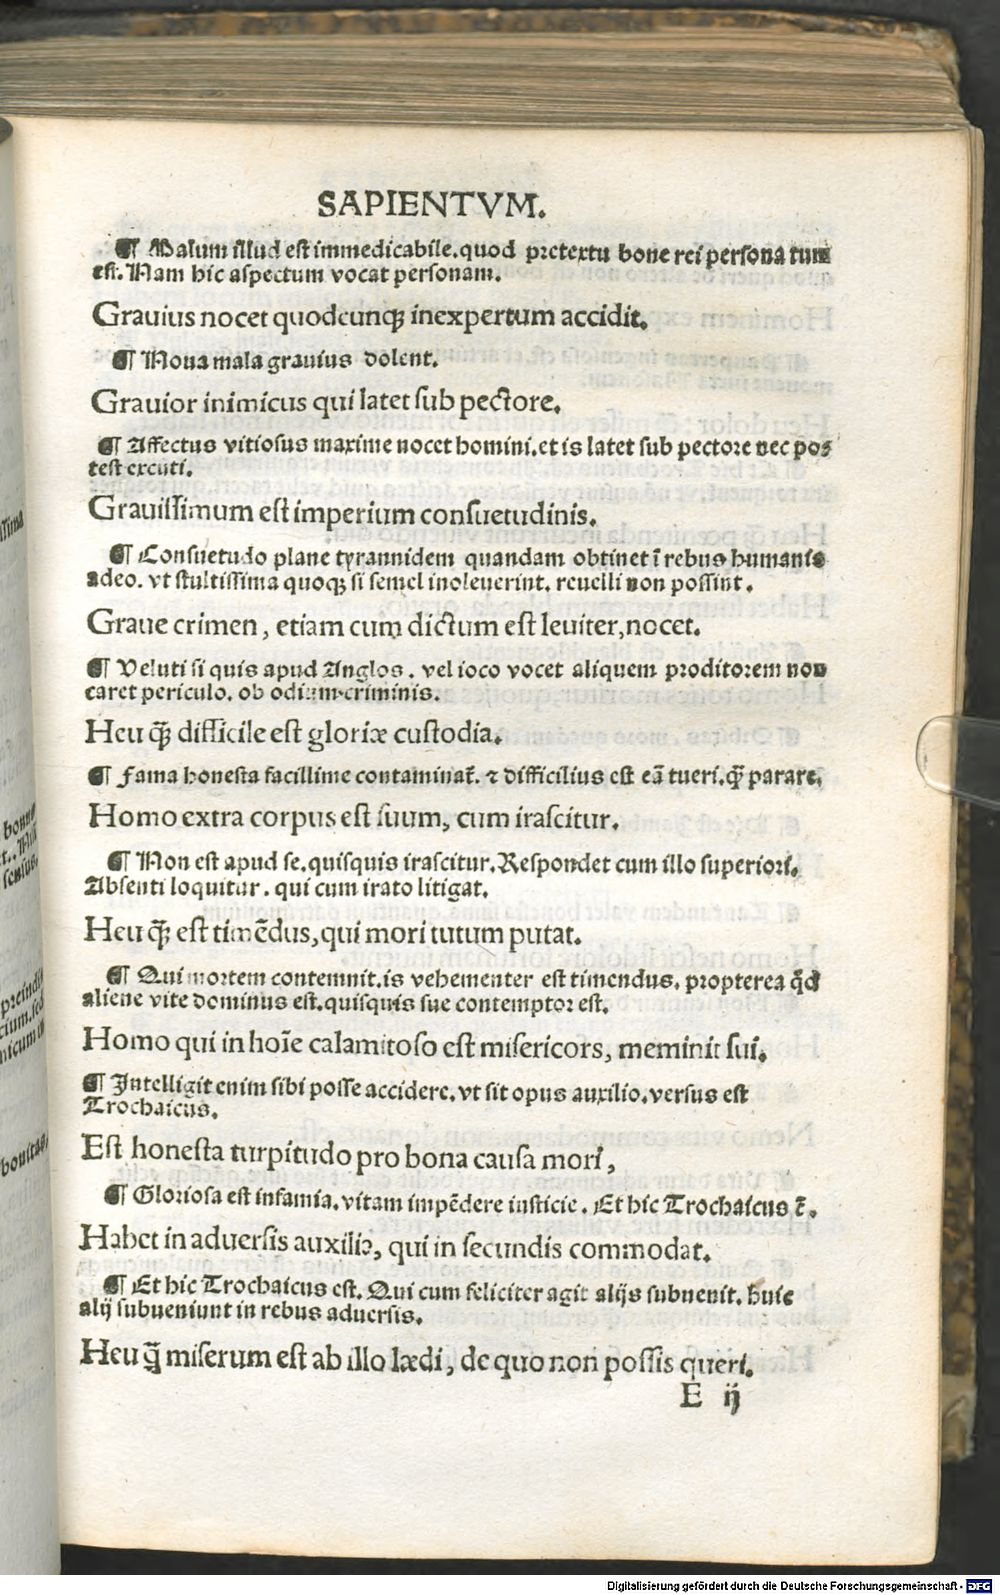 SAPIENTVM.
¶ Malum illud est immedicabile. quod pretextu bone rei persona tum
est. Nam hic aspectum vocat personam.
Grauius nocet quodcunqꝫ inexpertum accidit.
¶ Noua mala grauius dolent.
Grauior inimicus qui latet sub pectore.
¶ Affectus vitiosus maxime nocet homini. et is latet sub pectore nec po⸗
test excuti.
Grauissimum est imperium consuetudinis.
¶ Consuetudo plane tyrannidem quandam obtinet ī rebus humanis
adeo. vt stultissima quoqꝫ si semel inoleuerint. reuelli non possint.
Graue crimen, etiam cum dictum est leuiter, nocet.
¶ Veluti si quis apud Anglos. vel ioco vocet aliquem proditorem non
caret periculo. ob odium criminis.
Heu q̄ꝫ difficile est gloriæ custodia.
¶ Fama honesta facillime contaminat᷑. ⁊ difficilius est eā tueri. q̄ꝫ parare.
Homo extra corpus est suum, cum irascitur.
¶ Non est apud se. quisquis irascitur. Respondet cum illo superiori.
Absenti loquitur. qui cum irato litigat.
Heu q̄ꝫ est timēdus, qui mori tutum putat.
¶ Qui mortem contemnit. is vehementer est timendus. propterea q̄d
aliene vite dominus est. quisquis sue contemptor est.
Homo qui in hoīe calamitoso est misericors, meminit sui.
¶ Intelligit enim sibi posse accidere. vt sit opus auxilio. versus est
Trochaicus.
Est honesta turpitudo pro bona causa mori,
¶ Gloriosa est infamia. vitam impēdere iusticie. Et hic Trochaicus ē.
Habet in aduersis auxilia, qui in secundis commodat.
¶ Et hic Trochaicus est. Qui cum feliciter agit alijs subuenit. huic
alij subueniunt in rebus aduersis.
Heu q̄ꝫ miserum est ab illo lædi, de quo non possis queri.
E ij
ssima
bonitas.
Digitalisierung gefördert durch die Deutsche Forschungsgemeinschaft - DFG